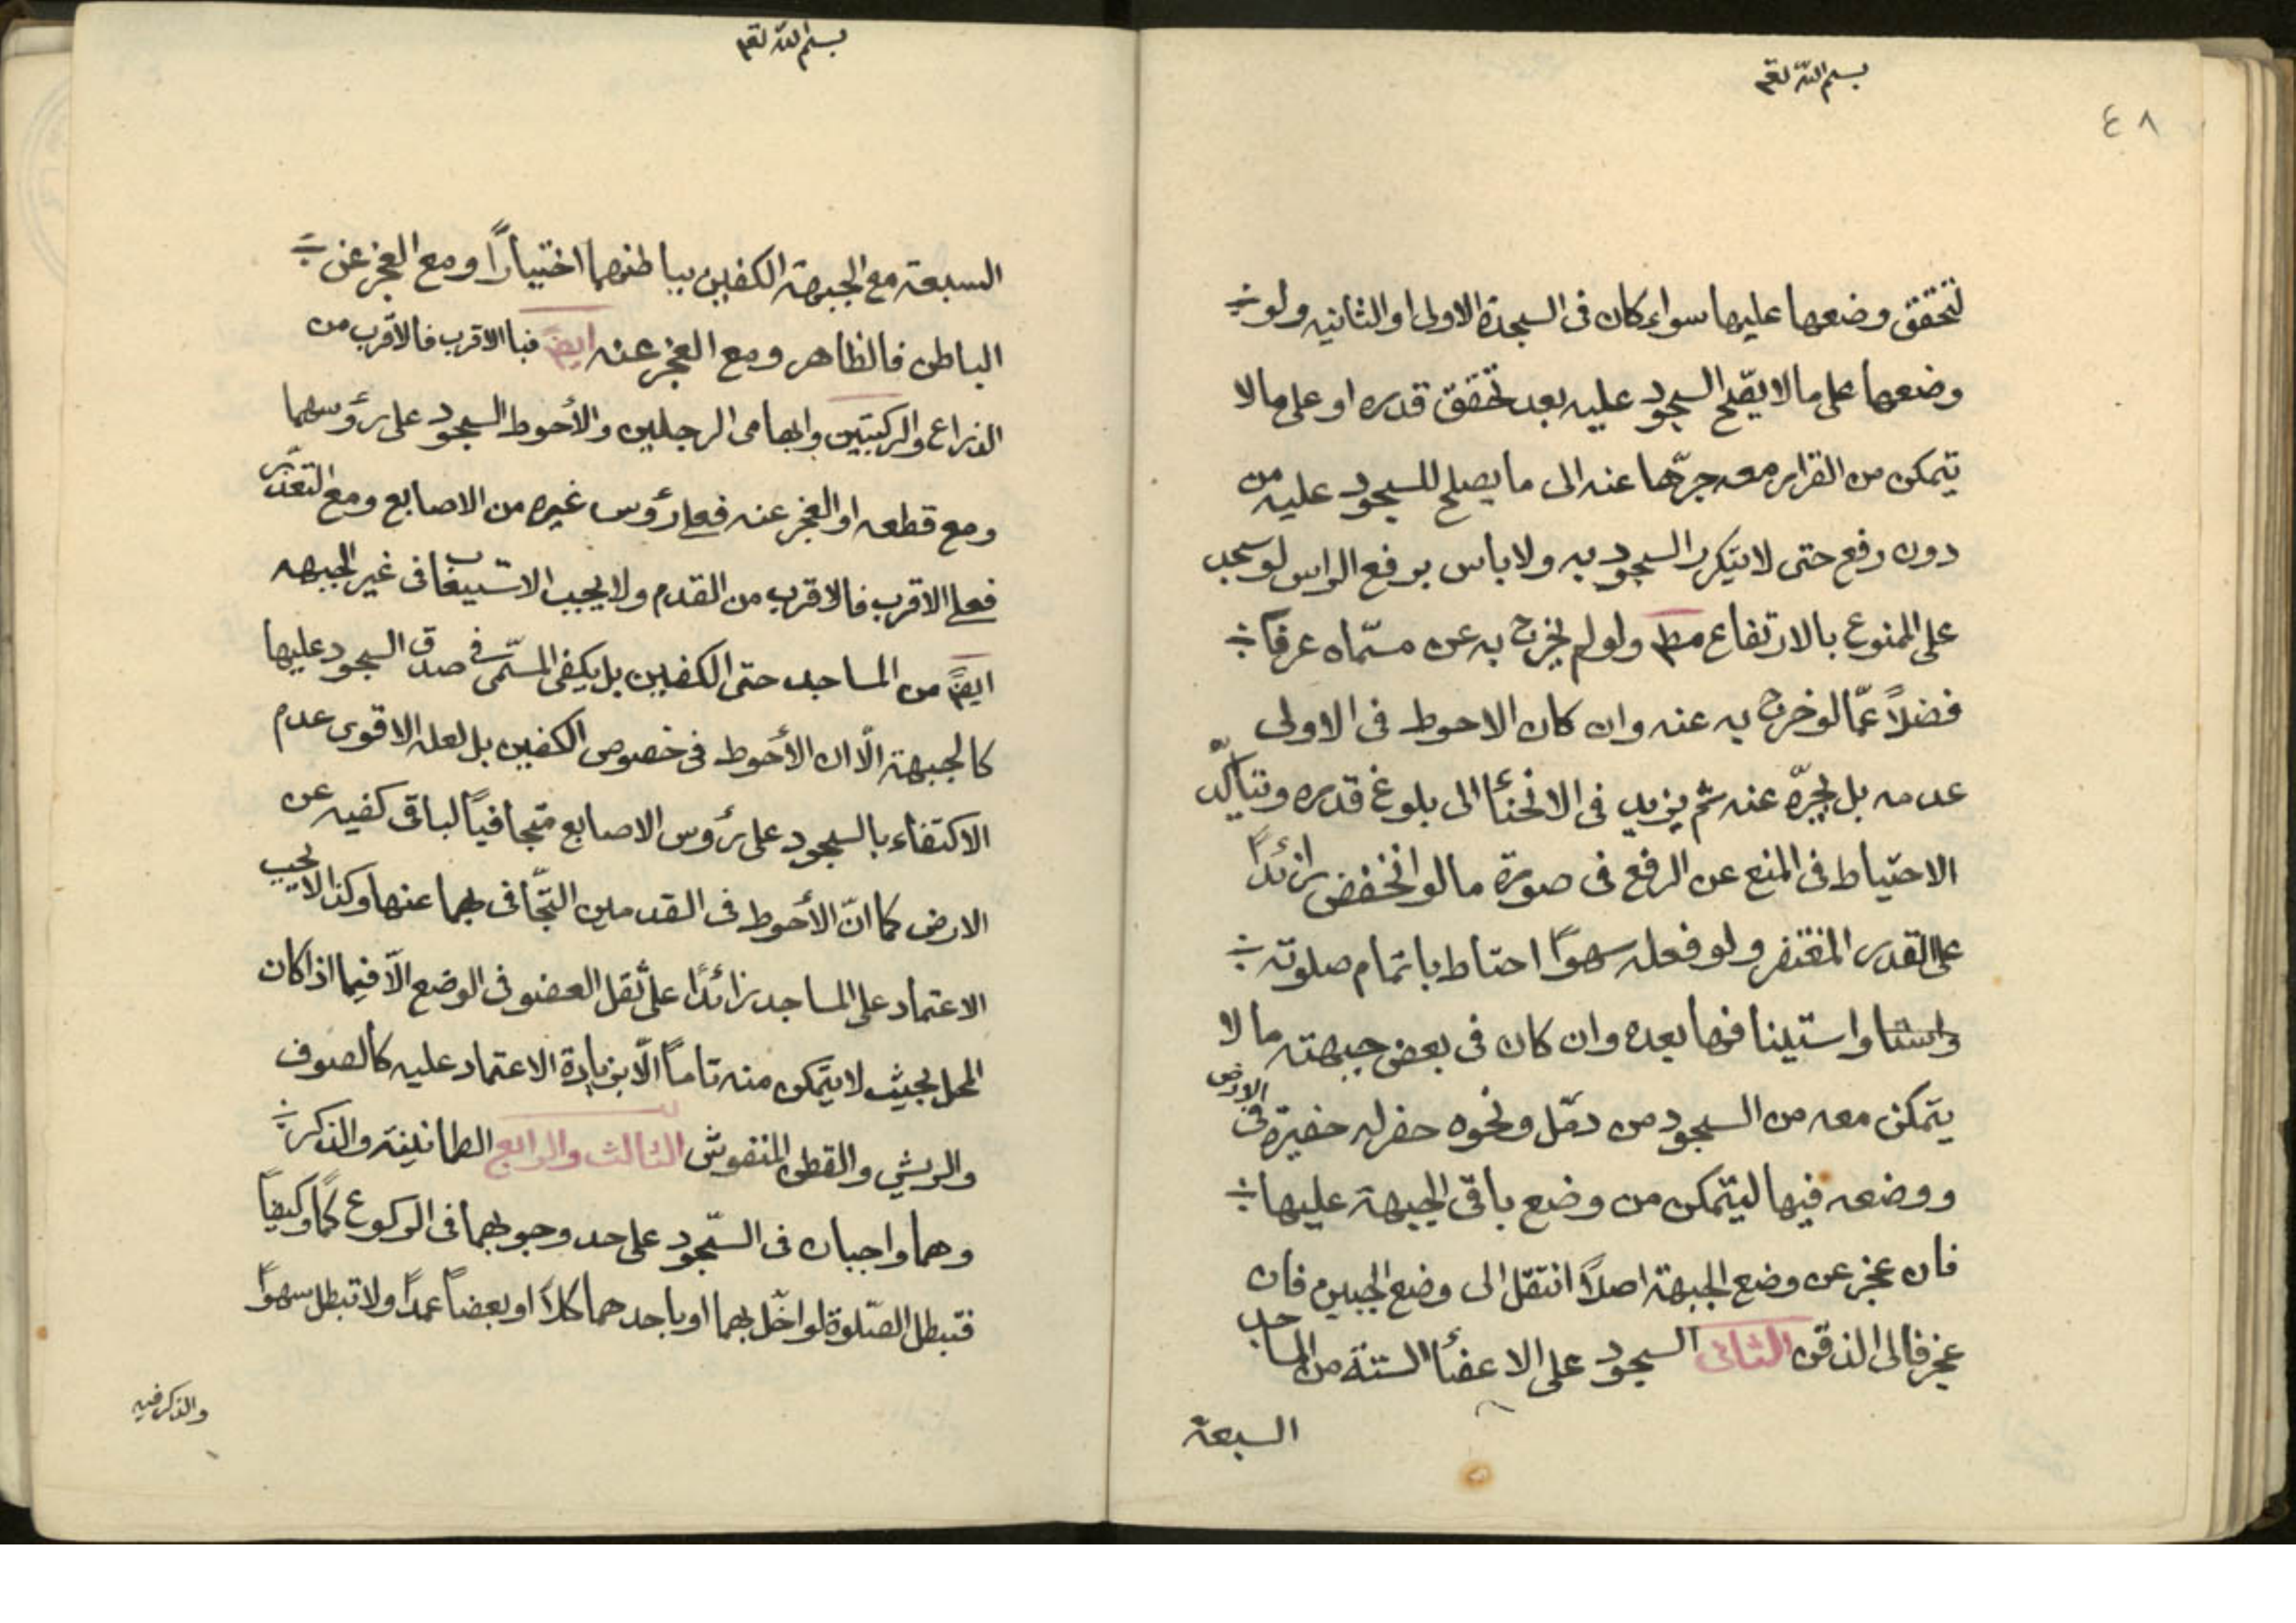 ٤٨
بسم الله تعم
لتحقق وضعها عليها سواء كان فى السجدة الاولى او الثانيه ولو
وضعها على ما لا يصّح السجود عليه بعد تحقق قدره او على ما لا
يتمكن من القرار معه جرّها عنه الى ما يصلح للسجود عليه من
دون رفع حتى لا يتكرر السجود به ولا باس برفع الراس لو سجد
على الممنوع بالارتفاع مط ولو لم يخرج به عن مسّماه عرفاً
فضلاً عمّا لو خرج به عنه وان كان الاحوط فى الاولى
عدمه بل يجرّه عنه ثم يزيد فى الانحنأ الى بلوغ قدره ويتأكّد
الاحتياط فى المنع عن الرفع فى صورة ما لو انخفض زائداً
على القدر المغتفر ولو فعله سهواً احتاط باتمام صلوته
واستا واستينافها بعده وان كان فى بعض جبهته ما لا
يتمكن معه من السجود من دمّل ونحوه حفر له حفيرة فى الارض
ووضعه فيها ليتمكن من وضع باقى الجبهة عليها
فان عجز عن وضع الجبهة اصلاً انتقل الى وضع الجبين فان
عجز فالى الذقن الثانى السجود على الاعضأ الستة من المساجد
السبعة
بسم الله تعم
السبعة مع الجبهة الكفين بباطنهما اختياراً ومع العجز عن
الباطن فالظاهر ومع العجز عنه ايضً فبا الاقرب فالاقرب من
الذراع والركبتين وابهامى الرجلين والأحوط السجود على رؤسهما
ومع قطعه او العجز عنه فعلى رؤس غيره من الاصابع ومع التعذّر
فعلى الاقرب فالاقرب من القدم ولا يجب الاستيعاب فى غير الجبهه
ايضً من المساجد حتى الكفين بل يكفى المسّمى فى صدق السجود عليها
كالجبهة الّا ان الأحوط فى خصوص الكفين بل لعله الاقوى عدم
الاكتفاء بالسجود على رؤس الاصابع متجافياً لباقى كفيه عن
الارض كما انّ الأحوط فى القدمين التجّافى بهما عنها وكذا لا يجب
الاعتماد على المساجد زائداً على ثقل العضو فى الوضع الّا فيما اذا كان
المحل بحيث لا يتمكن منه تاماً الّا بزيادة الاعتماد عليه كالصوف
والريش والقطن المنفوش الثالث والرابع الطمانينة والذكر
وهما واجبان فى السّجود على حد وجوبهما فى الركوع كمّاً وكيفاً
فتبطل الصّلوة لو اخّل بهما او باحدهما كلاً او بعضاً عمداً ولا تبطل سهواً
والذكر فيه